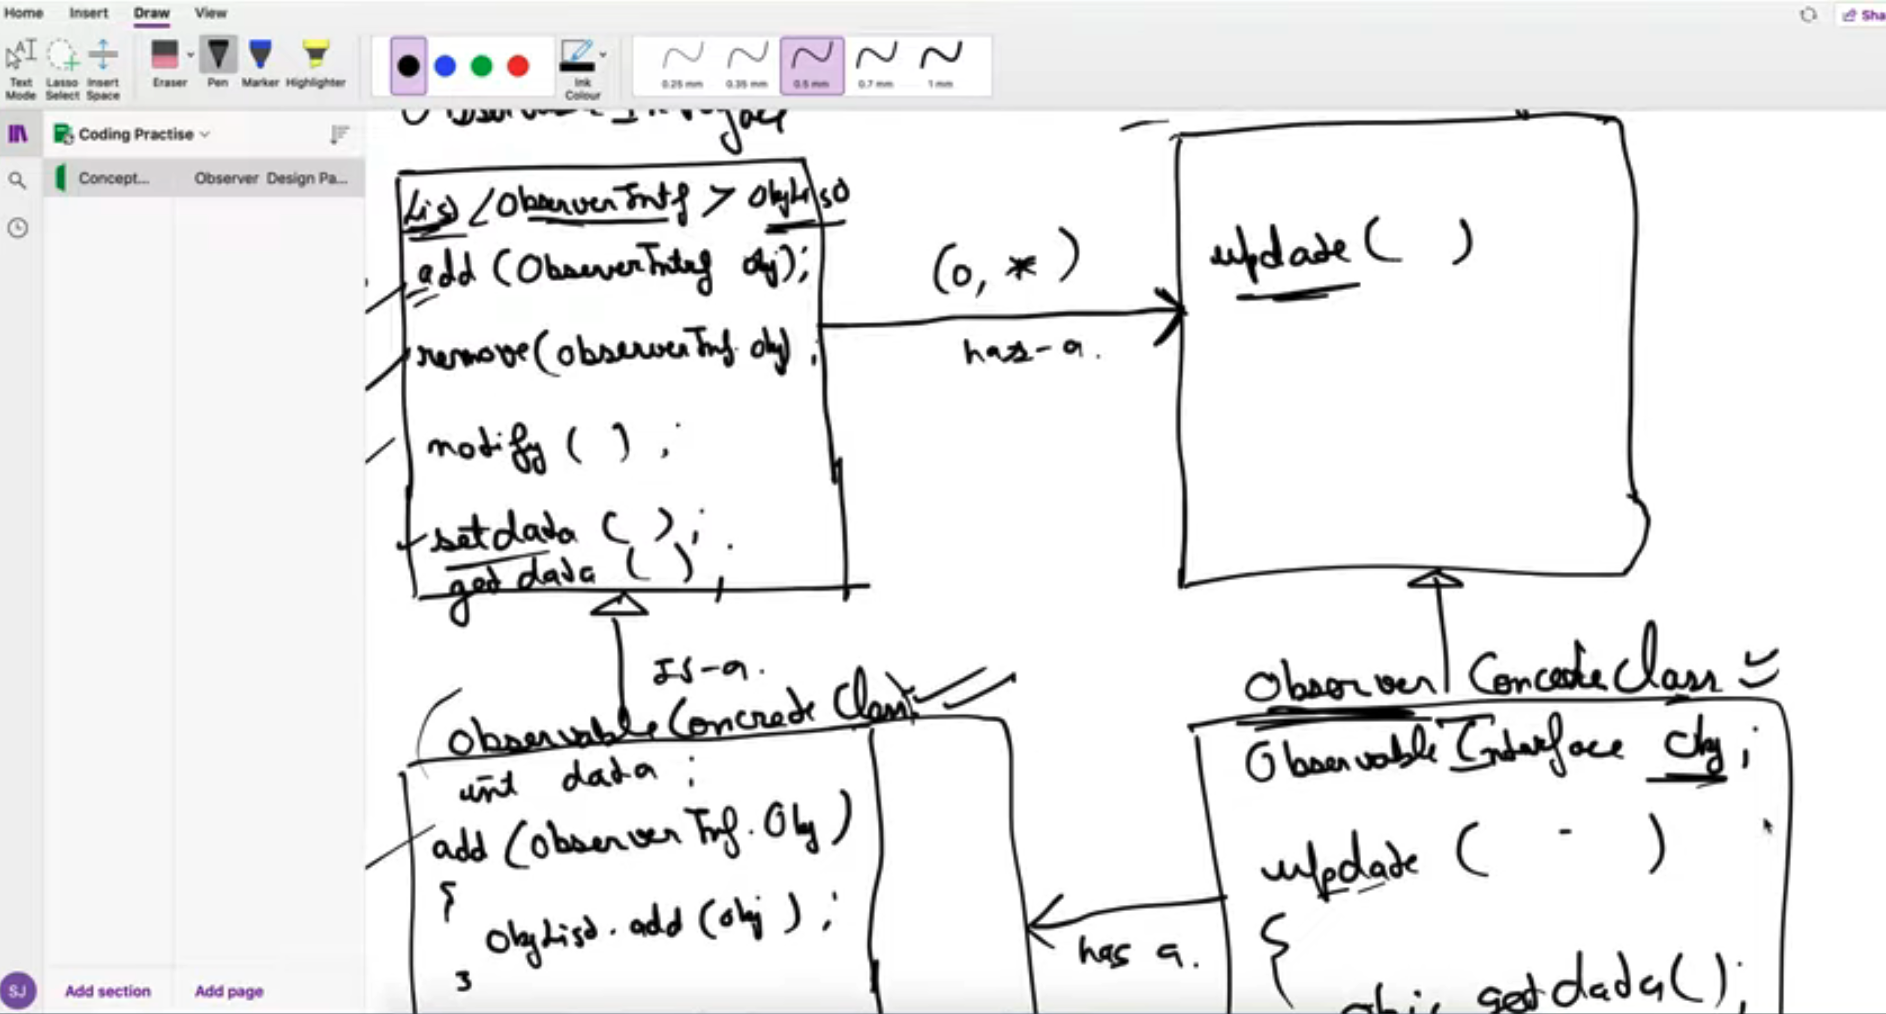 Home Insert Draw View
Sha
Text Mode
Lasso Select
Insert Space
Eraser
Pen
Marker
Highlighter
Ink Colour
0.25 mm
0.35 mm
0.5 mm
0.7 mm
1 mm
Coding Practise
Concept...
Observer Design Pa...
Observable Interface
List <ObserverIntf> ObjList
add (ObserverIntrf obj);
remove (observerInf. obj);
notify ( ) ;
setdata ( ) ;
get data ( ) ;
(0, *)
has-a.
update ( )
Is-a.
Observable Concrete Class
int data ;
add (Observer Inf. Obj)
{
ObjList. add (obj) ;
}
has a.
Observer Concrete Class
Observable Interface obj ;
update ( - )
{
getdata();
SJ
Add section
Add page